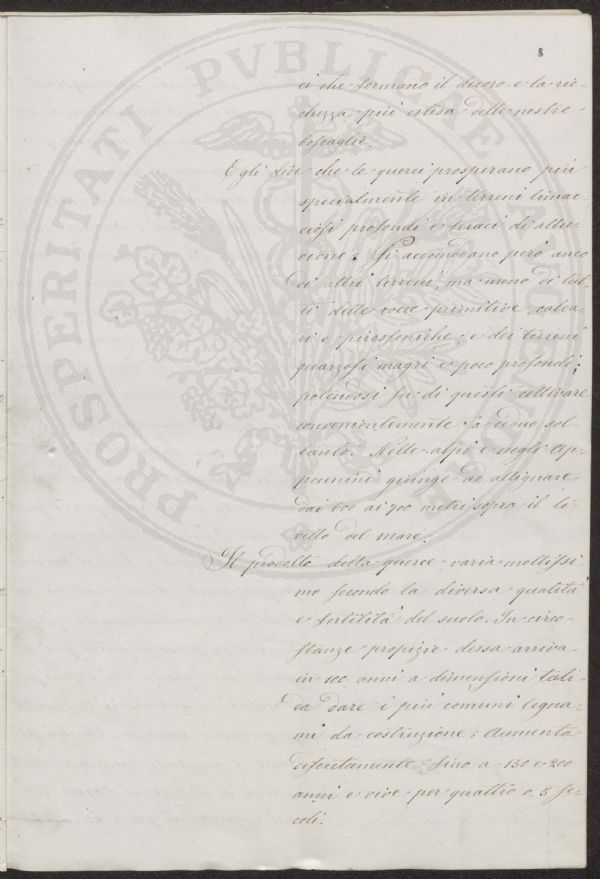 8
ci che formano il decoro e la ric-
chezza più estesa delle nostre
boscaglie.
Egli dice che le querci prosperano più
specialmente in terreni limac-
ciosi profondi e feraci di altre
Si accomodano però anco
di altri terreni, ma meno di tut-
ti delle rocce primitive, calca-
ri e e dei terreni
quarzosi magri e poco profondi;
potendosi su di questi coltivare
convenientemente a ceduo sol-
tanto. Nelle alpi e negli Ap-
pennini giunge ad allignare
dai 600 ai 700 metri sopra il li-
vello del mare.
Il prodotto della querce varia moltissi-
mo secondo la diversa qualità
e fertilità del suolo. In circo-
stanze propizie dessa arriva
in 100 anni a dimensioni tali
da dare i più comuni legna-
mi da costruzione: Aumenta
discretamente fino a 150 e 200
anni e vive per quattro o 5 se-
coli.
PROSPERITATI PVBLICAE